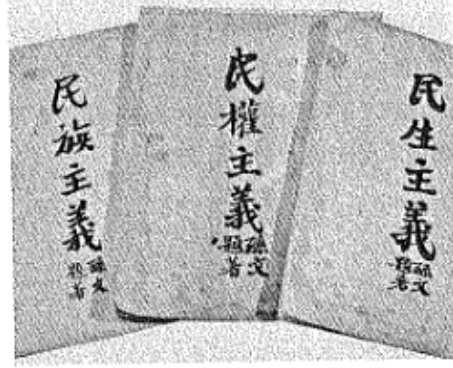 民族主義
孫文
題著
民權主義
孫文
題著
民生主義
孫文
題著